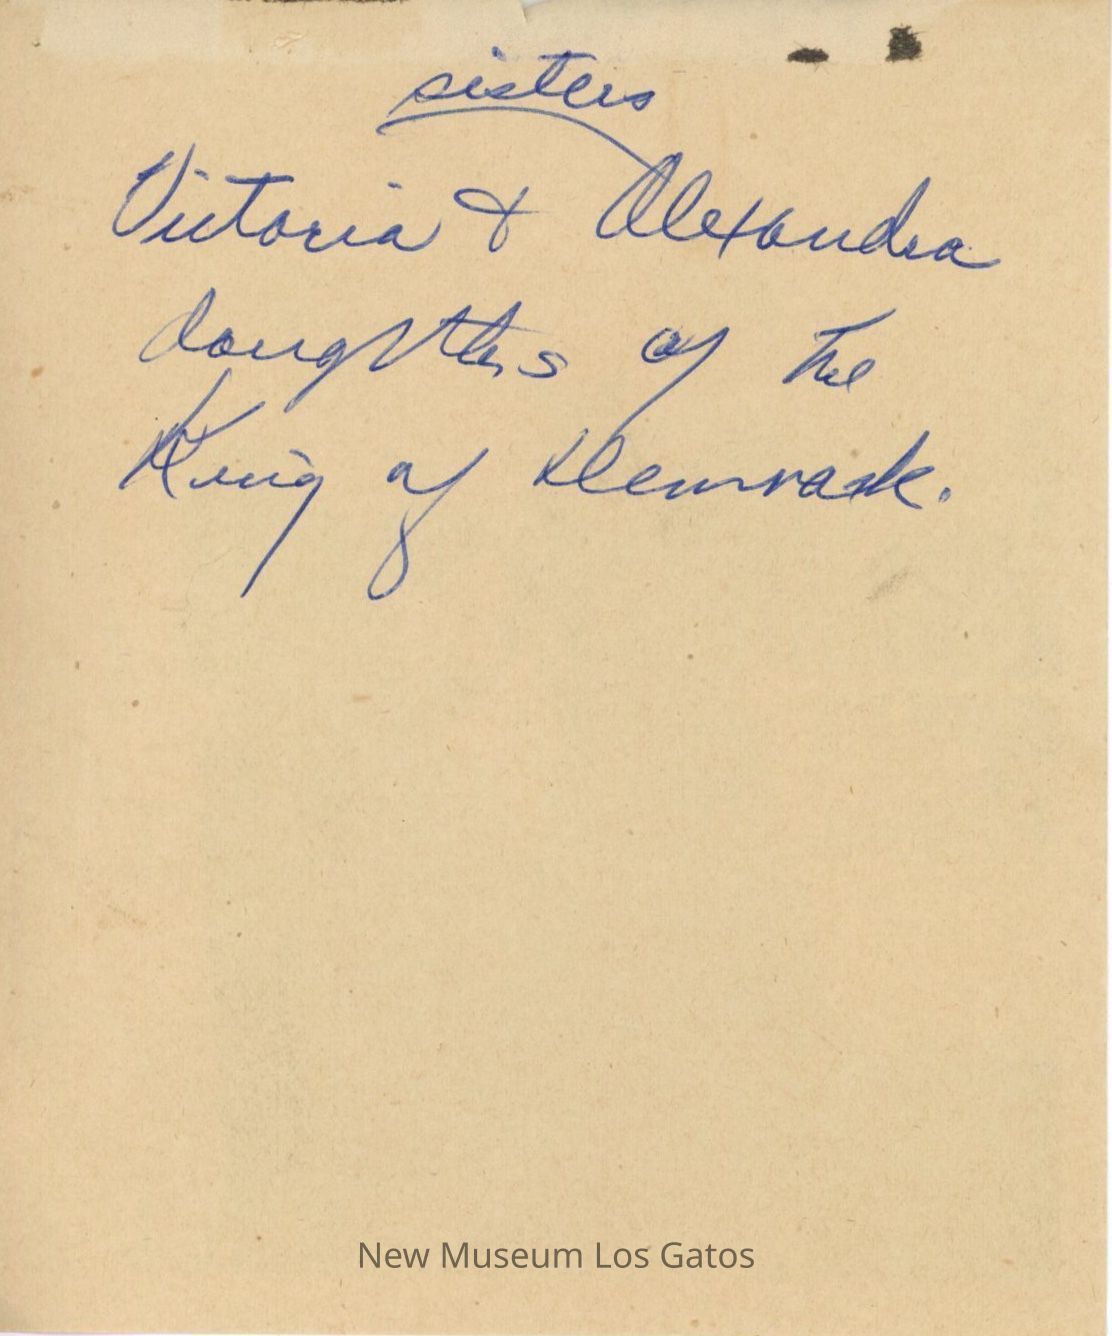 sisters
Victoria & Alexandra
daughters of the
King of Demrask.
New Museum Los Gatos